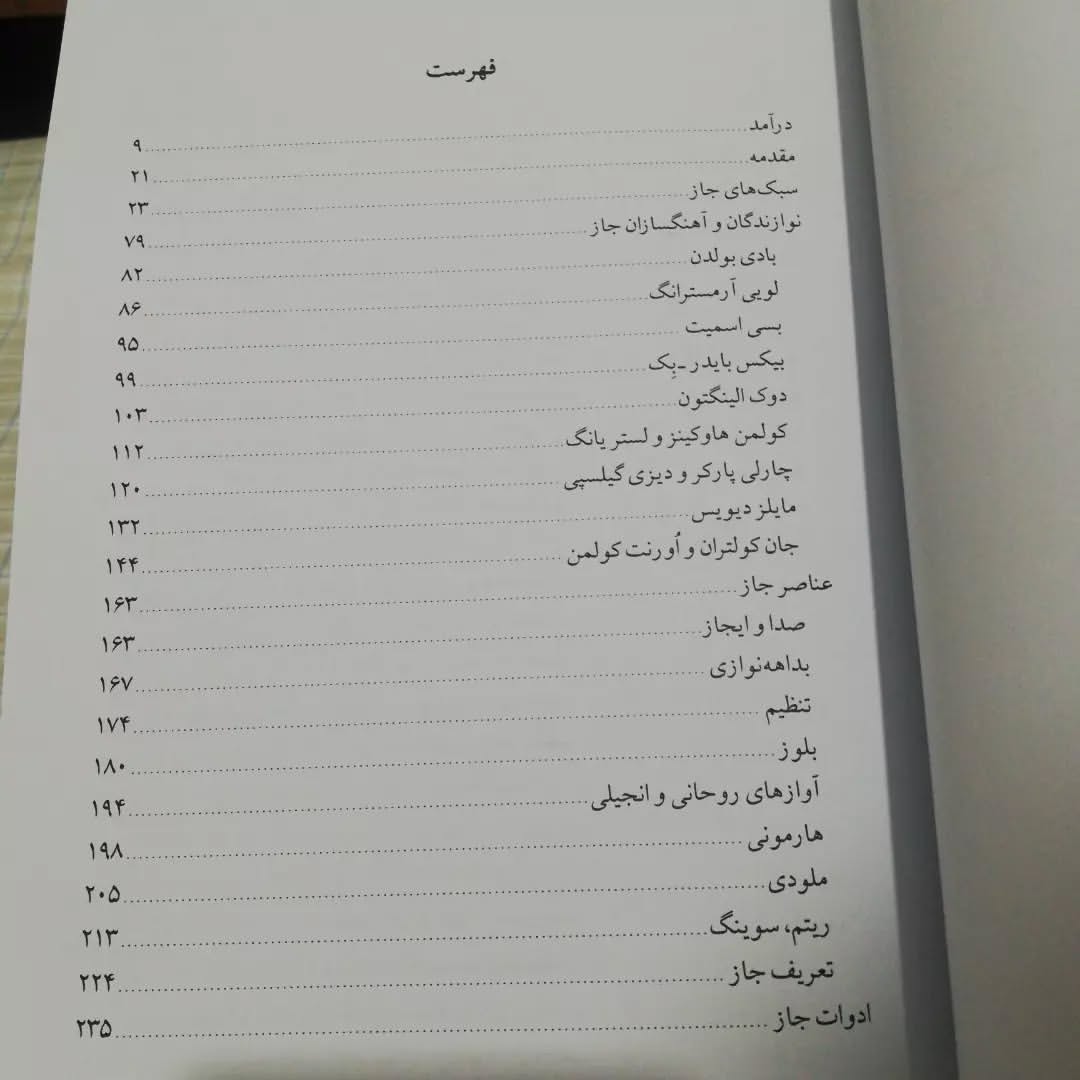 فهرست
درآمد ۹
مقدمه ۲۱
سبک‌های جاز ۲۳
نوازندگان و آهنگسازان جاز ۷۹
بادی بولدن ۸۲
لویی آرمسترانگ ۸۶
بسی اسمیت ۹۵
بیکس بایدر ـ بِک ۹۹
دوک الینگتون ۱۰۳
کولمن هاوکینز و لستر یانگ ۱۱۲
چارلی پارکر و دیزی گیلسپی ۱۲۰
مایلز دیویس ۱۳۲
جان کولتران و اُورنت کولمن ۱۴۴
عناصر جاز ۱۶۳
صدا و ایجاز ۱۶۳
بداهه‌نوازی ۱۶۷
تنظیم ۱۷۴
بلوز ۱۸۰
آوازهای روحانی و انجیلی ۱۹۴
هارمونی ۱۹۸
ملودی ۲۰۵
ریتم، سوینگ ۲۱۳
تعریف جاز ۲۲۴
ادوات جاز ۲۳۵